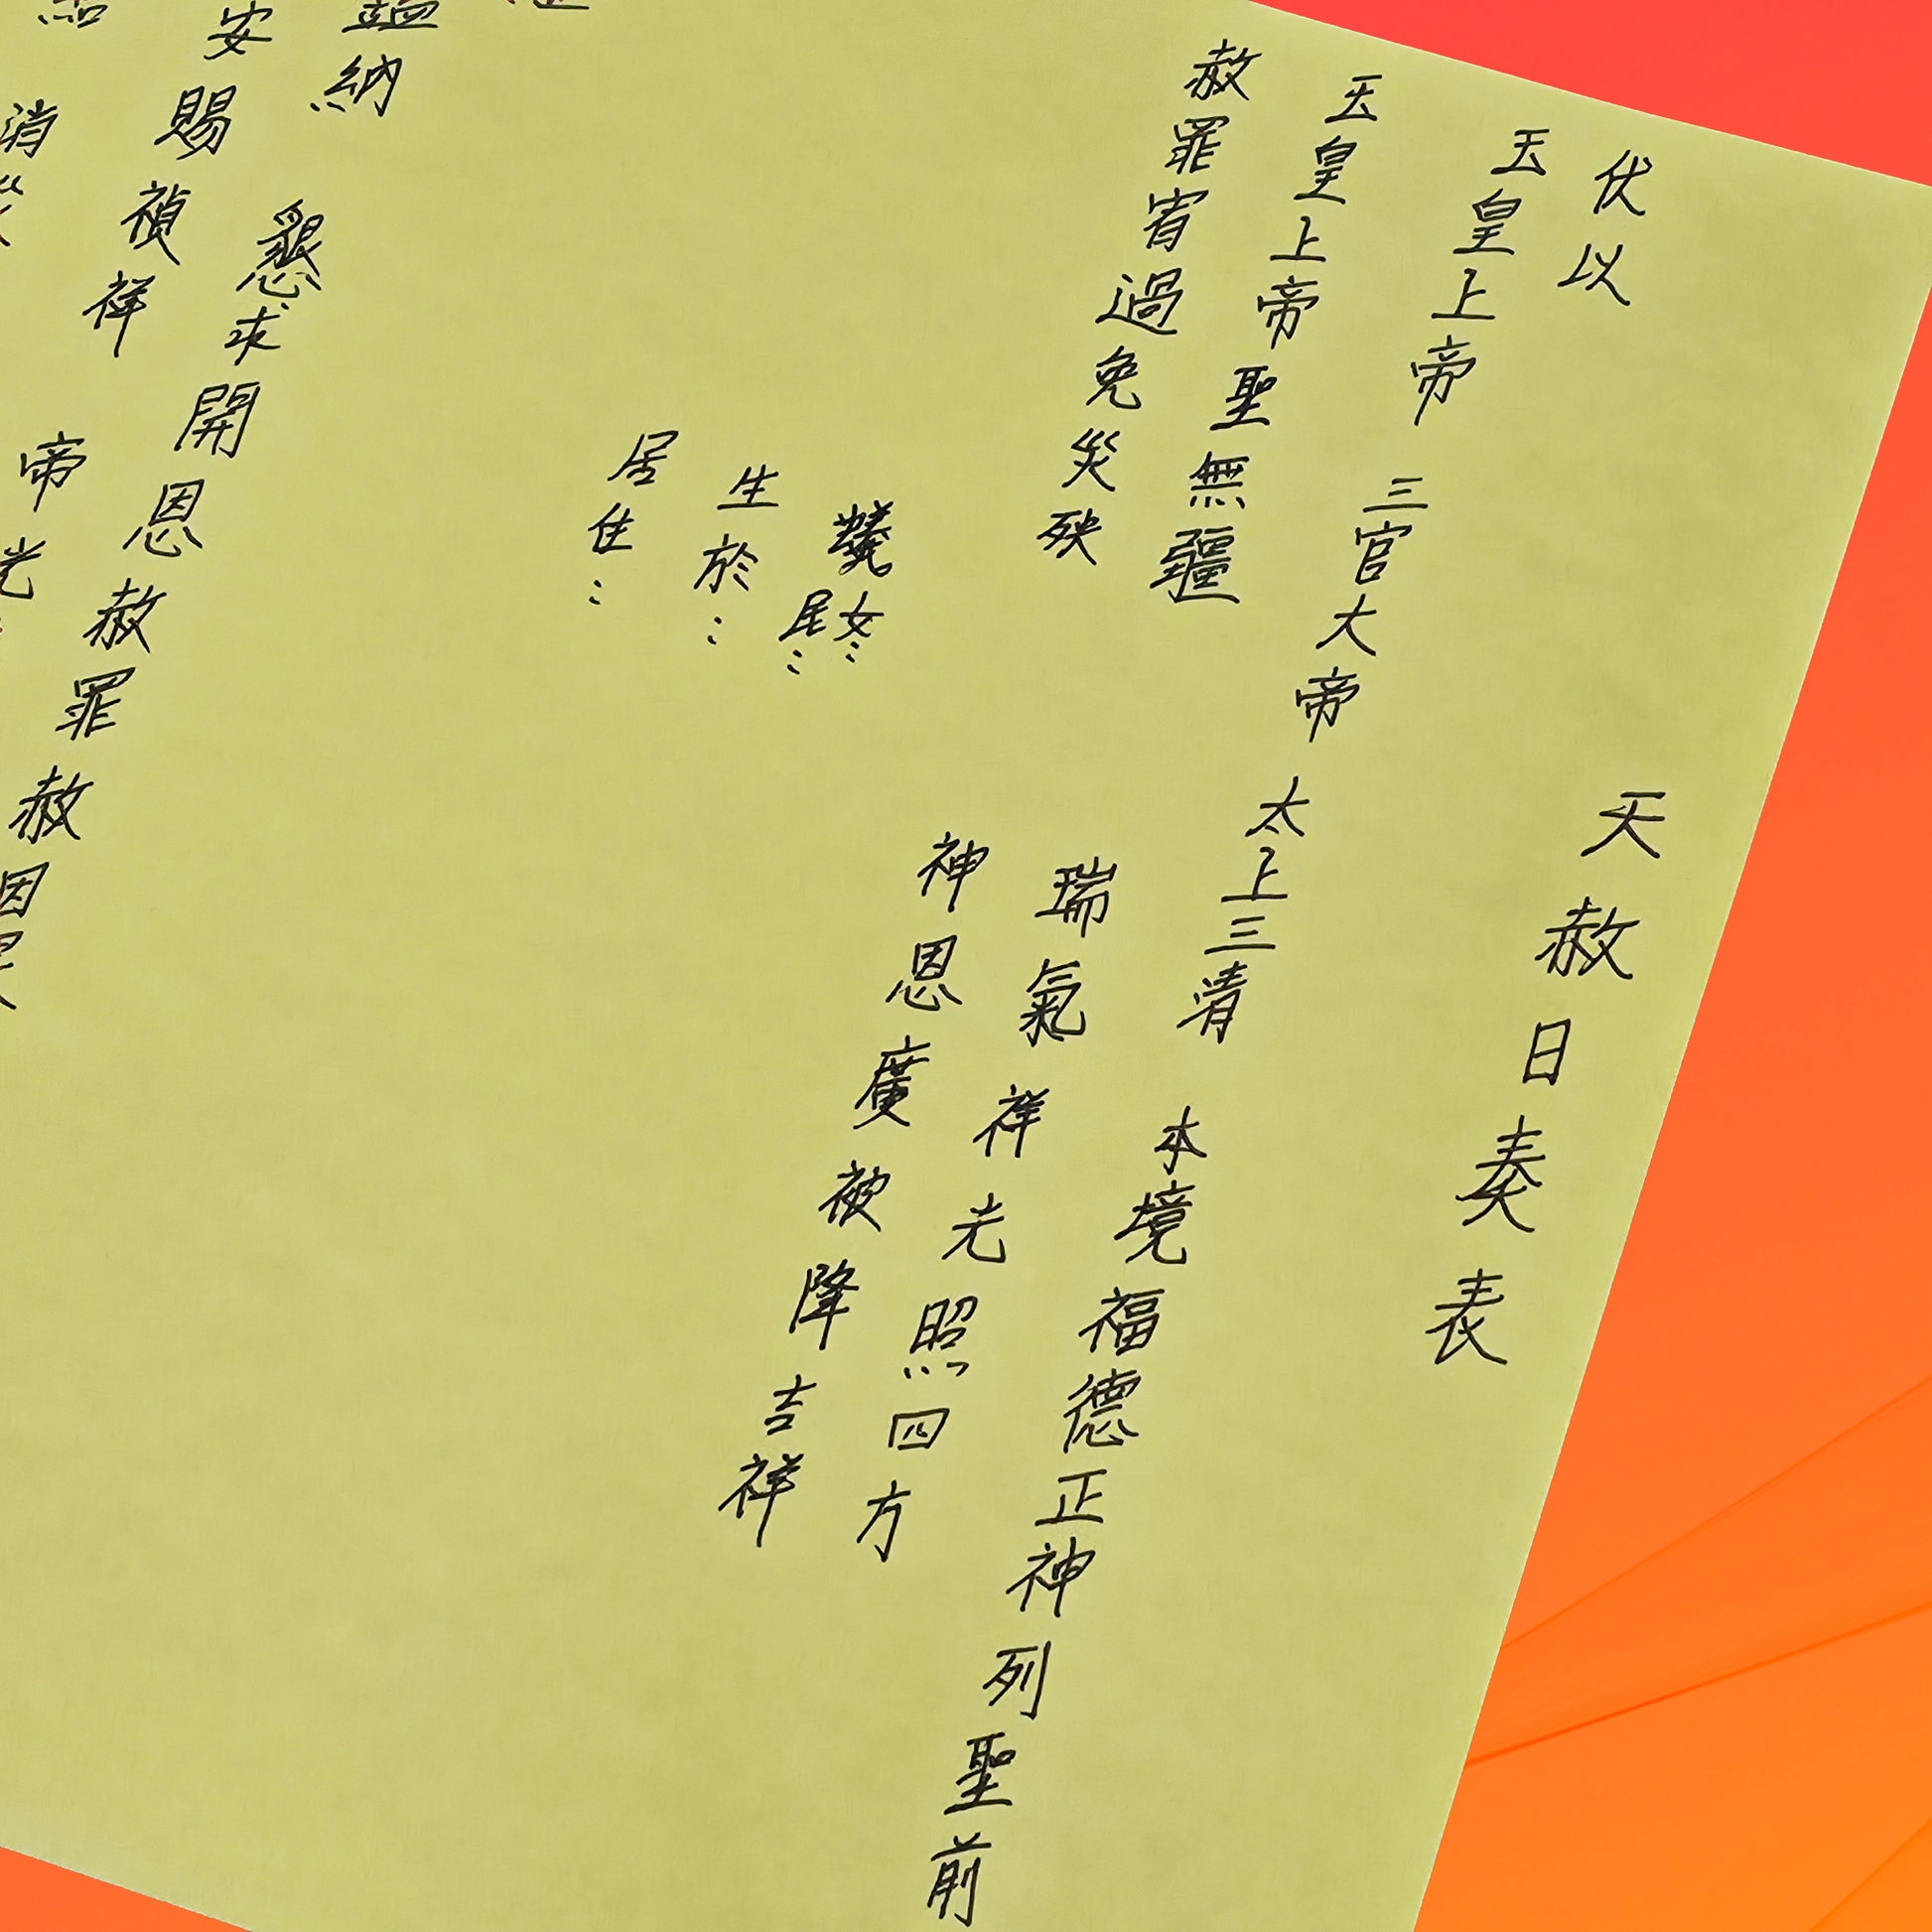 天赦日奏表
伏以
玉皇上帝 三官大帝 太上三清 本境福德正神列聖前
玉皇上帝聖無疆 瑞氣祥光照四方
赦罪宥過免災殃 神恩廣被降吉祥
女⋯
生於⋯
居住⋯
納 懇求開恩赦罪赦因果
安賜禎祥 帝光
消災